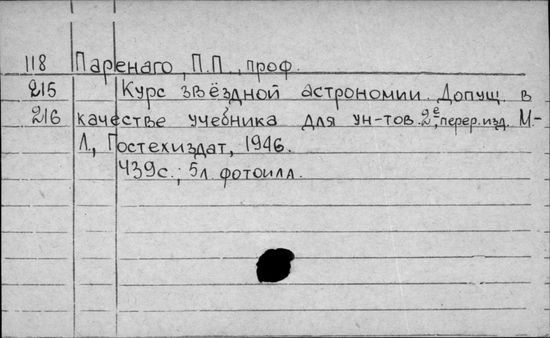 118 Паренаго, П.П., проф.
215 Курс звёздной астрономии. Допущ. в
216 качестве учебника для ун-тов. 2е перер. изд. М-
Л., Гостехиздат, 1946.
439с.; 5л. фотоилл.